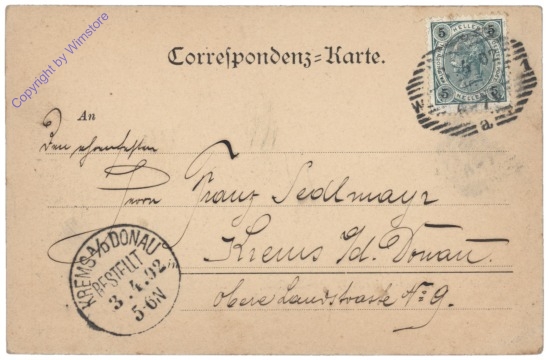 Copyright by Wimstore
Correspondenz=Karte.
5 HELLER 5
5 HELLER 5
a
An
den ehrenfesten
Herrn Franz Sedlmayr
Krems a/d. Donau.
Obere Landstrasse No: 9.
KREMS A/D DONAU
BESTELLT
3.4.02
5-6N